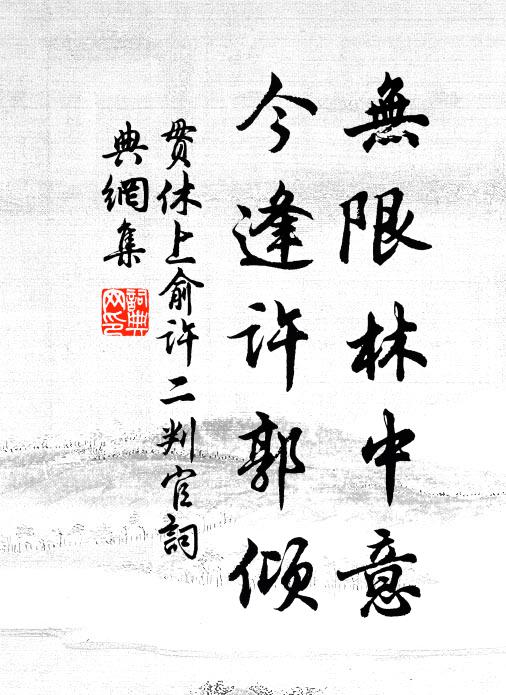 無限林中意
今逢許郭傾
貫休上俞許二判官詞
典網集
詞典
网印